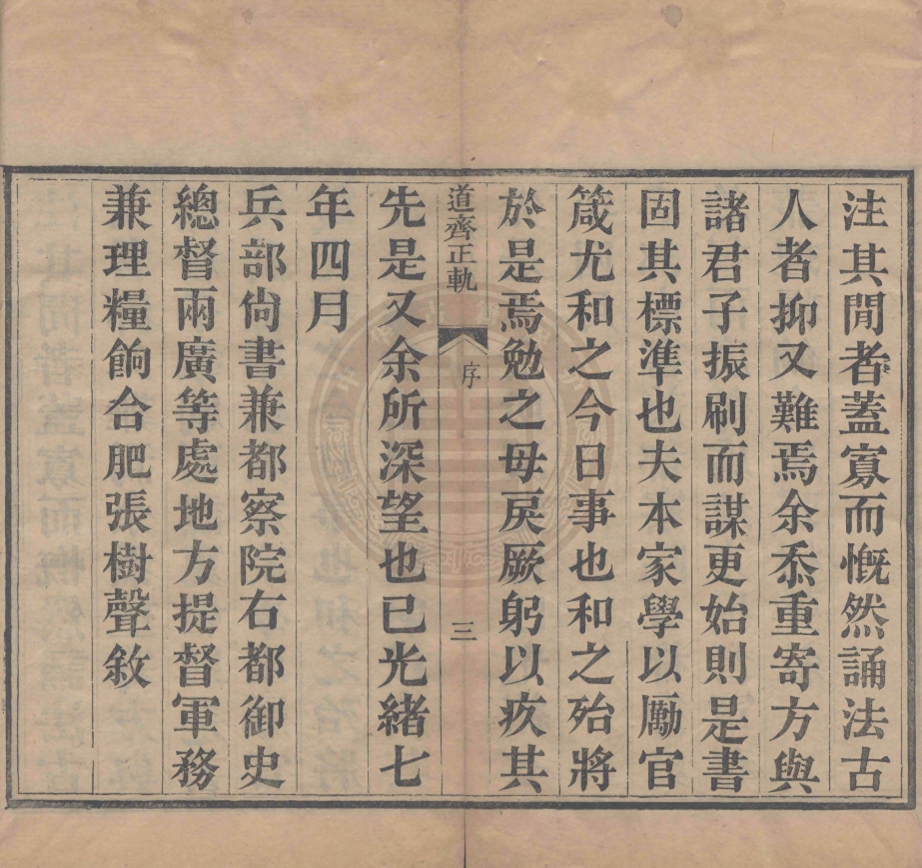 注其閒者蓋寡而慨然誦法古
人者抑又難焉余忝重寄方與
諸君子振刷而謀更始則是書
固其標準也夫本家學以勵官
箴尤和之今日事也和之殆將
於是焉勉之毋戾厥躬以疚其
道齊正軌 序 三
先是又余所深望也已光緒七
年四月
兵部尙書兼都察院右都御史
總督兩廣等處地方提督軍務
兼理糧餉合肥張樹聲敘